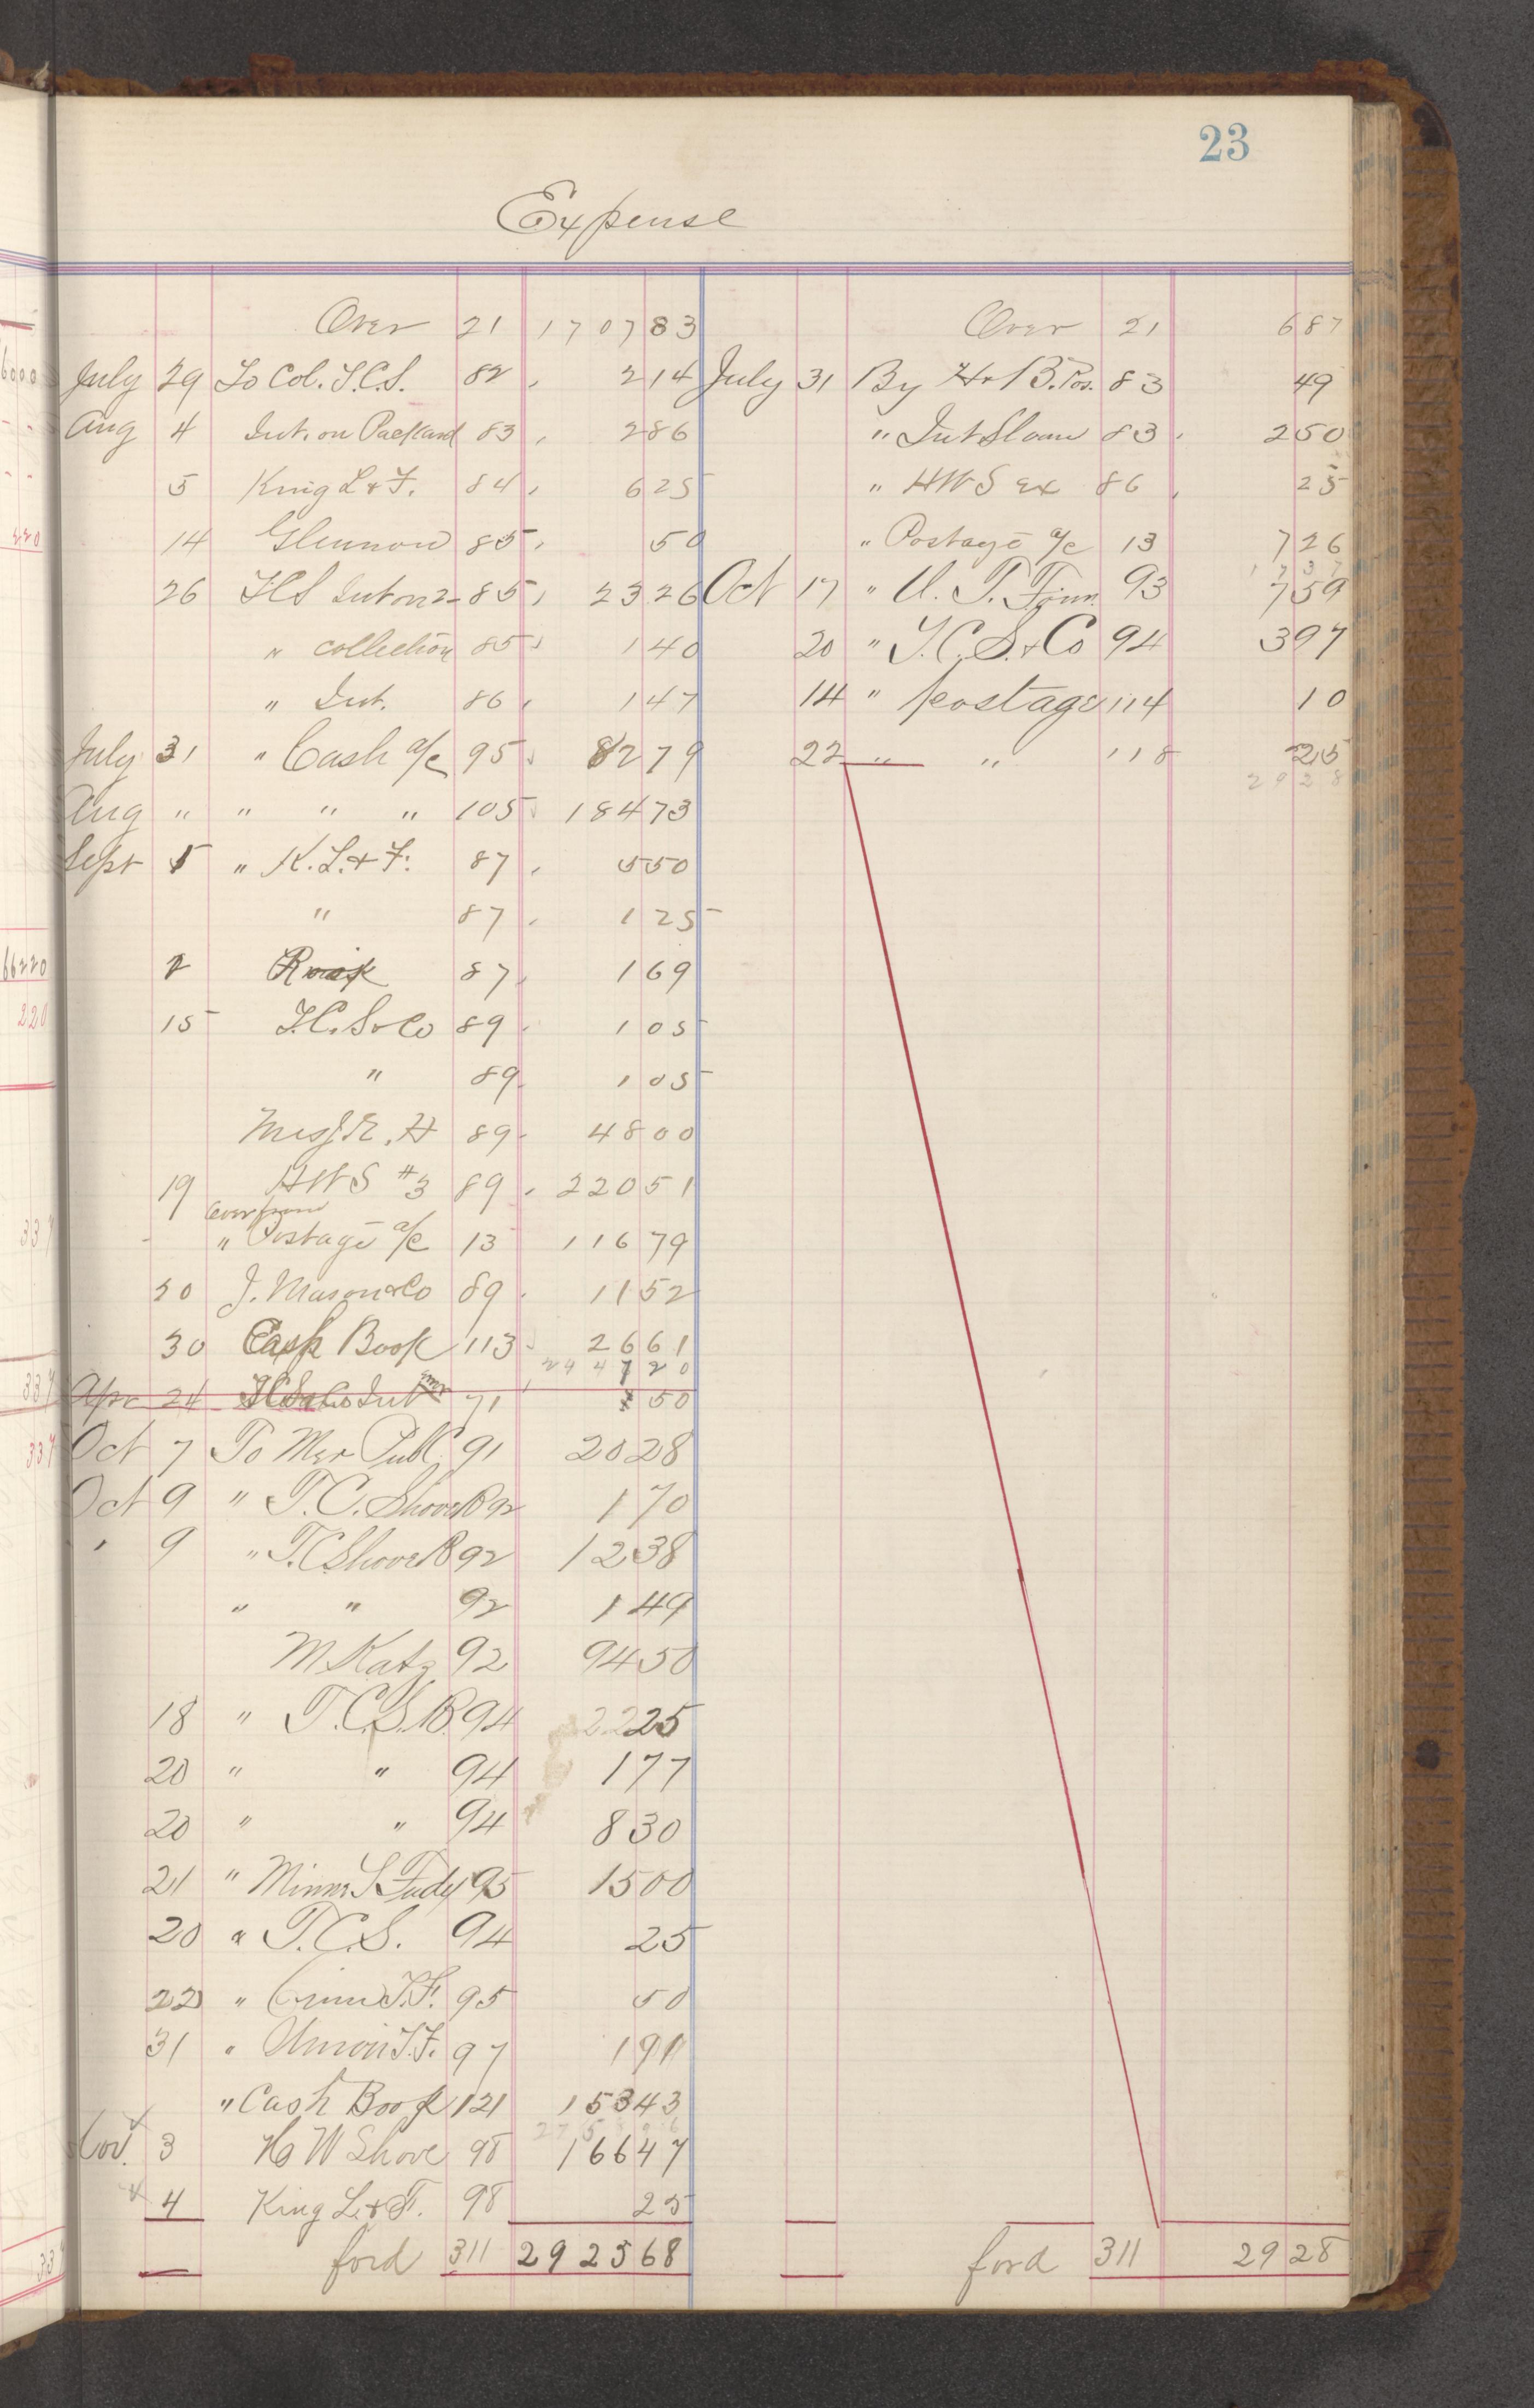 23
Expense
Over 21 1707 83
July 29 To Col. T.C.S. 82 2 14
Aug 4 Int. on Packard 83 2 86
5 King L & F. 84 6 25
14 Glennon 85 50
26 TCS Int on 2- 85 23 26
" collection 85 1 40
" Int. 86 1 47
July 31 " Cash a/c 95 82 79
Aug " " " " 105 184 73
Sept 5 " K. L. & F. 87 5 50
" 87 1 25
2 87 1 69
15 T.C.S & Co 89 1 05
" 89 1 05
89 48 00
19 HWS #3 89 220 51
Over from
" Postage a/c 13 116 79
20 J. Mason & Co 89 11 52
30 Cash Book 113 26 61
2447 20
Apr 24 Int 71 50
Oct 7 To Mer Publ 91 20 28
Oct 9 " T.C. Shove B 92 1 70
" 9 " T.C Shove B 92 12 38
" " 92 1 49
M Katz 92 94 50
18 " T.C.S. B. 94 22 25
20 " " 94 1 77
20 " " 94 8 30
21 " 95 15 00
20 " T.C.S. 94 25
22 " T.F. 95 50
31 " Union T.F. 97 1 91
" Cash Book 121 153 43
Nov. 3 H W Shove 98 166 47
4 King L. & F. 98 25
ford 311 2925 68
Over 21 6 87
July 31 By H & B. Pos. 83 49
" Int Sloan 83 2 50
" HWS Ex 86 25
" Postage a/c 13 7 26
17 37
Oct 17 " U. T. 93 7 59
20 " T.C.S. & Co 94 3 97
14 " postage 114 10
22 " " 118 25
29 28
ford 311 29 28